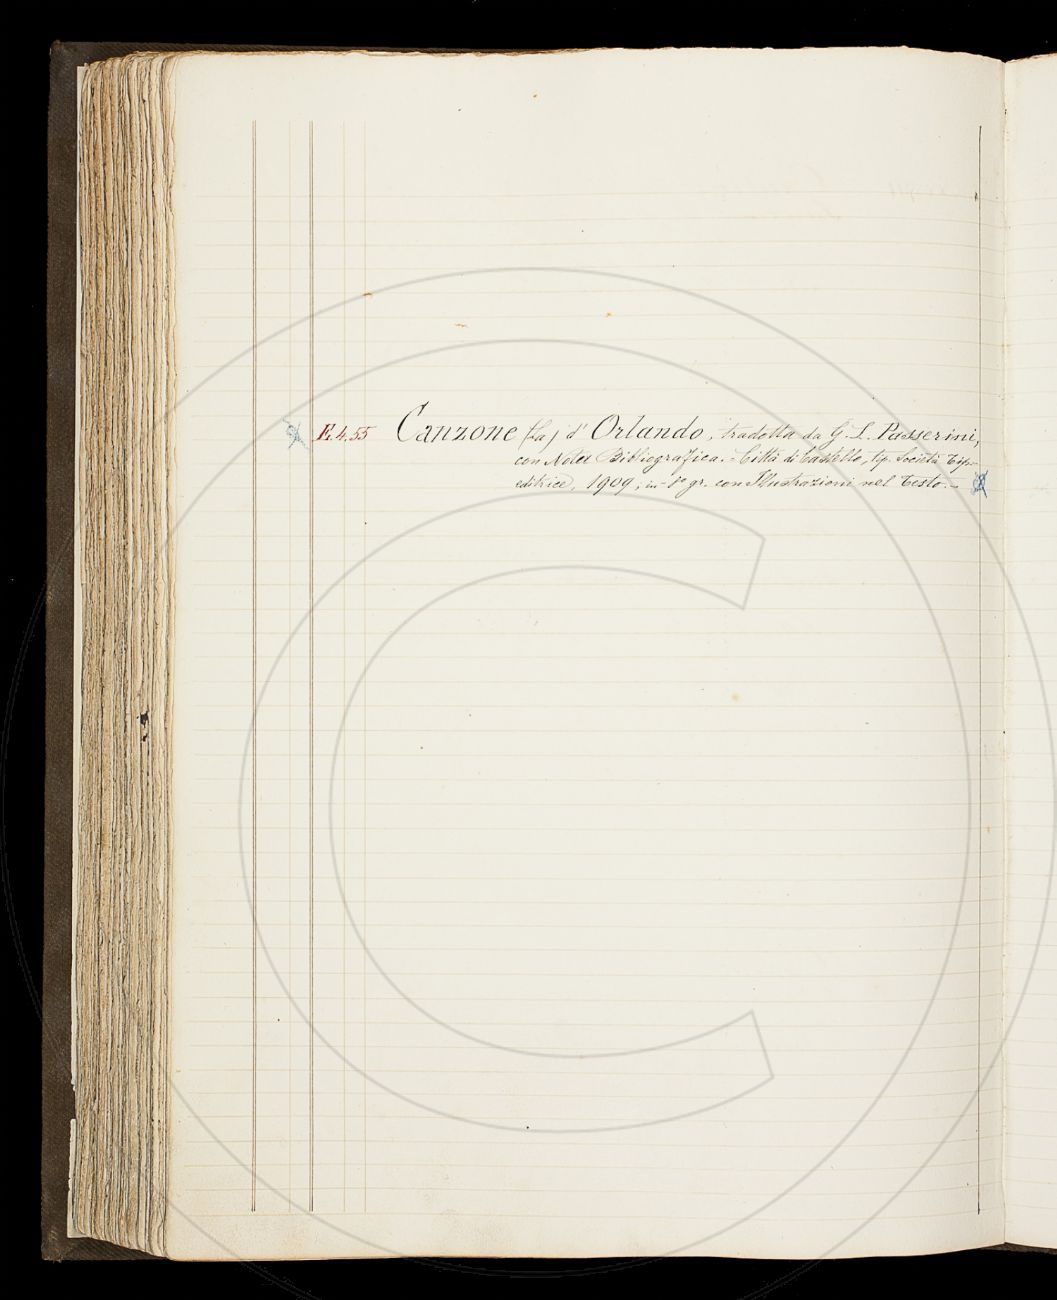 E.4.55 Canzone (La) d' Orlando, tradotta da G. L. Passerini,
con Nota Bibliografica. - Città di Castello, tip. Società Tip.-
editrice, 1909; in-8º gr. con Illustrazioni nel Testo. -